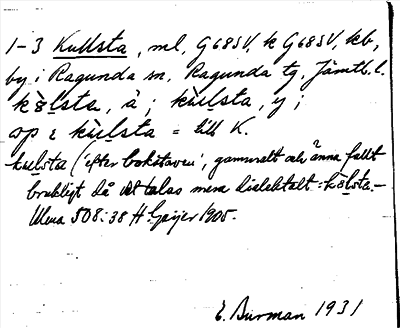 1-3 Kullsta, ml, G68SV, k G68SV, kb,
by i Ragunda sn, Ragunda tg, Jämtl. l.
kö̀lsta, ä; kùlsta, y;
op i kùlsta = till K.
kùlsta ('efter bokstaven', gammalt och ännu fullt
brukligt då det talas mera dialektalt: kö̀lsta.-
Ulma 508:38 H. Geijer 1905.
E. Burman 1931